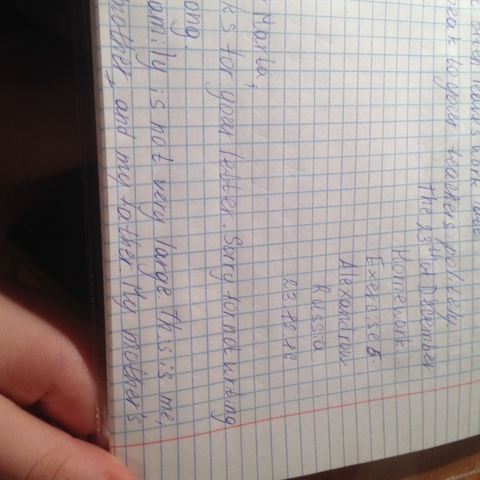 been
peak to your teachers politely
The 23th of December
Homework
Exercise 5
Alexandrov
Russia
Maria,
ks for your letter. Sory to not writing
ong.
amily is not very large. This is me,
mother, and my father. My mother's